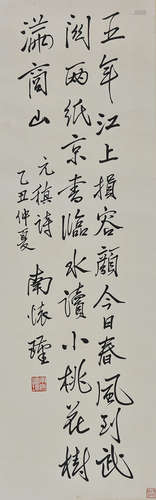 五年江上損容顏今日春風到武
關兩紙京書臨水讀小桃花樹
滿商山
元稹詩
乙丑仲夏
南懷瑾